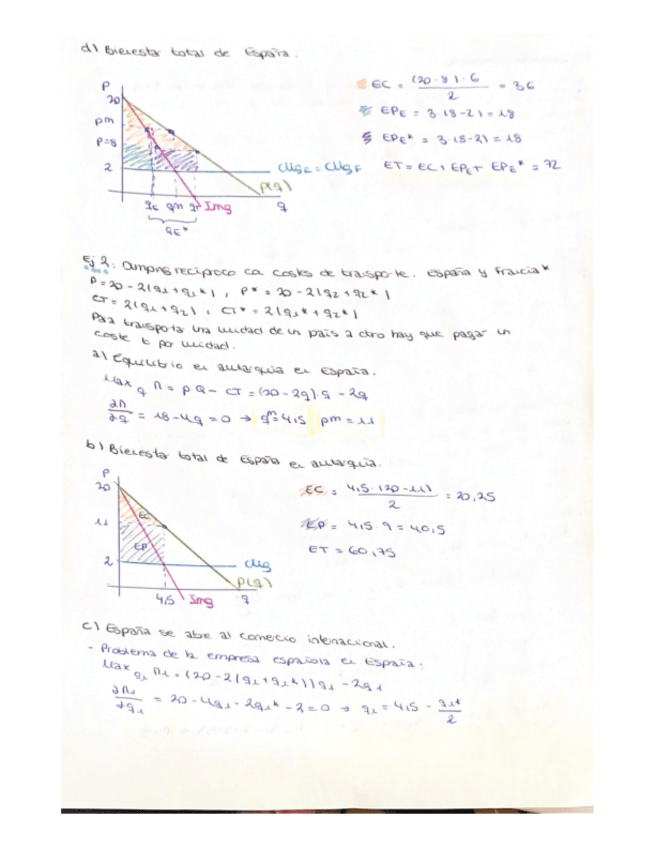 d) Bienestar total de España.
P
20
pm
P=8
2
CMgE = CMgF
p(q)
qE qm qT Img q
qE*
EC = (20-8)·6 / 2 = 36
EPE = 3·(8-2) = 18
EPE* = 3·(8-2) = 18
ET = EC + EPE + EPE* = 72
Ej 2: Dumping recíproco con costes de transporte. España y Francia*
P = 20 - 2(q1 + q1*), P* = 20 - 2(q2 + q2*)
CT = 2(q1 + q2), CT* = 2(q1* + q2*)
Para transportar una unidad de un país a otro hay que pagar un
coste t por unidad.
a) Equilibrio en autarquía en España.
Max q Π = pQ - CT = (20-2q)·q - 2q
∂Π/∂q = 18 - 4q = 0 → qm = 4,5 pm = 11
b) Bienestar total de España en autarquía.
P
20
11
2
EC
EP
CMg
p(q)
4,5 Img q
EC = 4,5·(20-11) / 2 = 20,25
EP = 4,5·9 = 40,5
ET = 60,75
c) España se abre al comercio internacional.
- Problema de la empresa española en España:
Max q1 Π1 = (20 - 2(q1 + q1*))q1 - 2q1
∂Π1/∂q1 = 20 - 4q1 - 2q1* - 2 = 0 → q1 = 4,5 - q1*/2